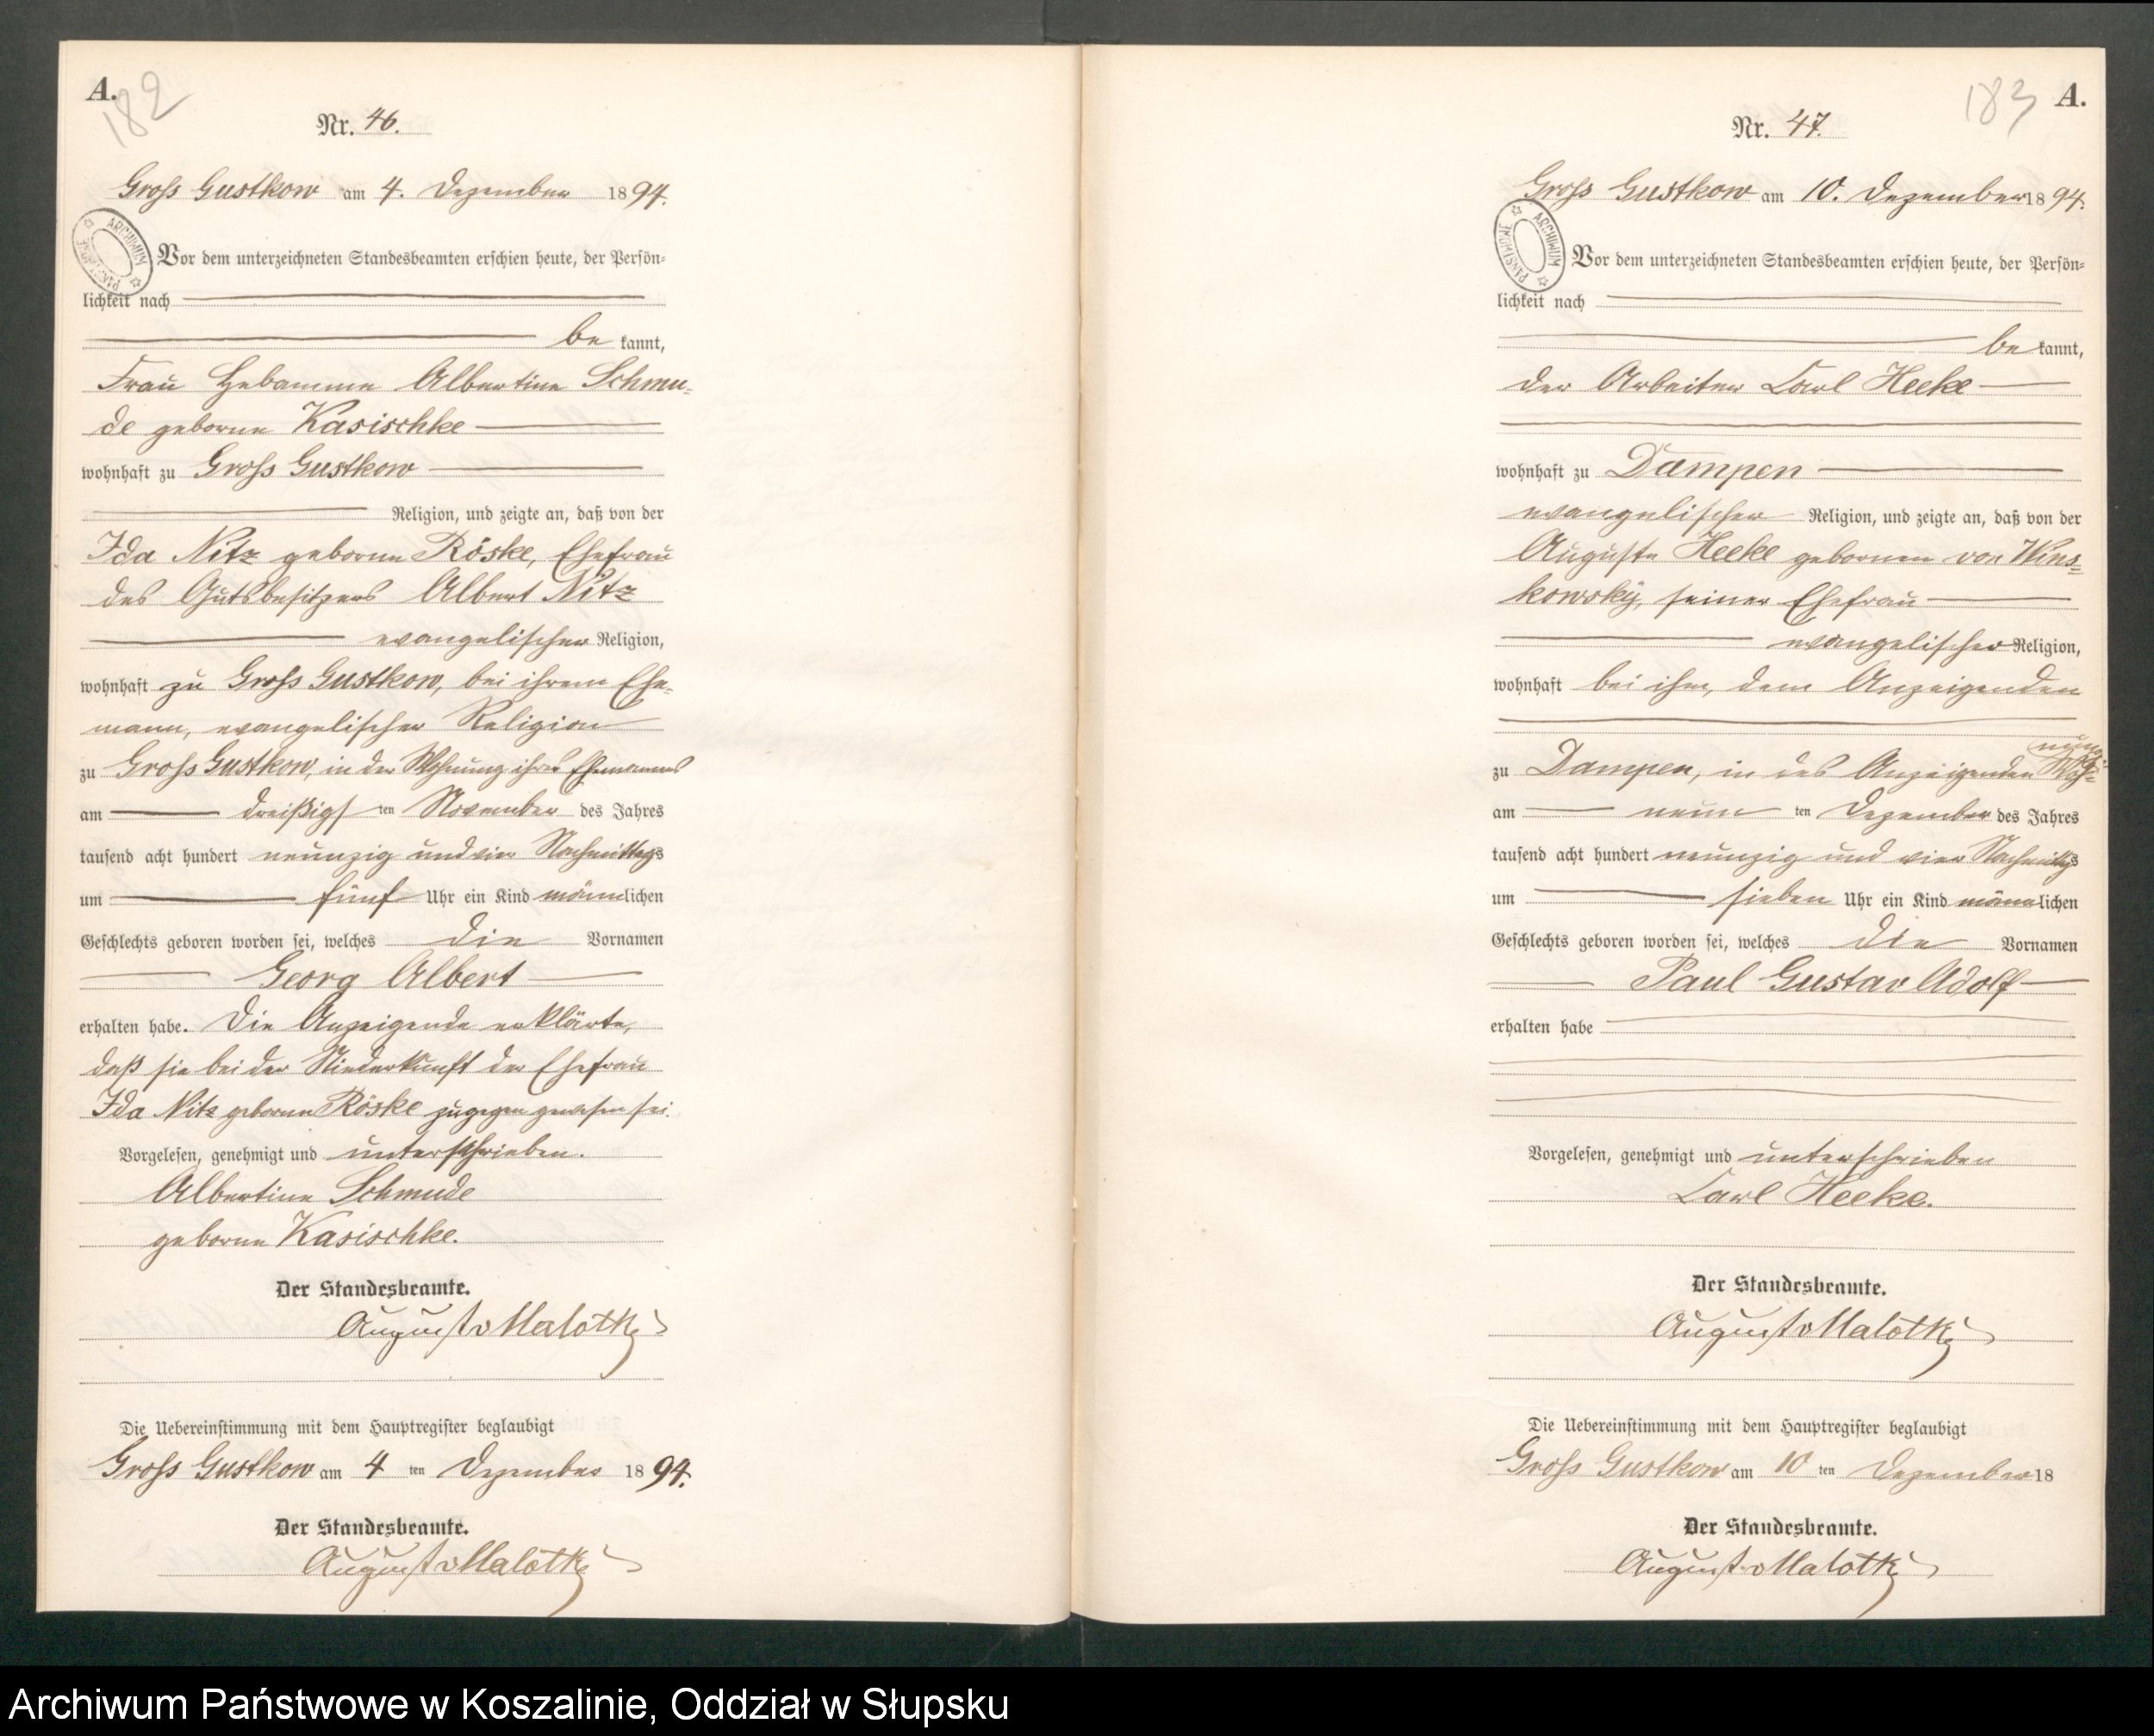 A.
182
Nr. 46.
Gross Gustkow am 4. Dezember 1894.
ARCHIWUM PAŃSTWOWE
Vor dem unterzeichneten Standesbeamten erschien heute, der Persön=
lichkeit nach
be kannt,
Frau Hebamme Albertine Schmu-
de geborne Kasischke
wohnhaft zu Gross Gustkow
Religion, und zeigte an, daß von der
Ida Nitz geborne Röske, Ehefrau
des Gutsbesitzers Albert Nitz
evangelischer Religion,
wohnhaft zu Gross Gustkow, bei ihrem Ehe-
mann, evangelischer Religion
zu Gross Gustkow, in der Wohnung ihres Ehemannes
am dreißigsten November des Jahres
tausend acht hundert neunzig und vier Nachmittags
um fünf Uhr ein Kind männlichen
Geschlechts geboren worden sei, welches die Vornamen
Georg Albert
erhalten habe. Die Anzeigende erklärte,
daß sie bei der Niederkunft der Ehefrau
Ida Nitz geborne Röske zugegen gewesen sei.
Vorgelesen, genehmigt und unterschrieben.
Albertine Schmude
geborne Kasischke.
Der Standesbeamte.
August v Malotki
Die Uebereinstimmung mit dem Hauptregister beglaubigt
Gross Gustkow am 4 ten Dezember 1894.
Der Standesbeamte.
August v Malotki
183
A.
Nr. 47.
Gross Gustkow am 10. Dezember 1894.
ARCHIWUM PAŃSTWOWE
Vor dem unterzeichneten Standesbeamten erschien heute, der Persön=
lichkeit nach
be kannt,
der Arbeiter Carl Heeke
wohnhaft zu Dampen
evangelischer Religion, und zeigte an, daß von der
Auguste Heeke gebornen von Wins=
kowsky, seiner Ehefrau
evangelischer Religion,
wohnhaft bei ihm, dem Anzeigenden
zu Dampen, in des Anzeigenden Woh-
nung
am neun ten Dezember des Jahres
tausend acht hundert neunzig und vier Nachmittgs
um sieben Uhr ein Kind männlichen
Geschlechts geboren worden sei, welches die Vornamen
Paul Gustav Adolf
erhalten habe
Vorgelesen, genehmigt und unterschrieben
Carl Heeke.
Der Standesbeamte.
August v Malotki
Die Uebereinstimmung mit dem Hauptregister beglaubigt
Gross Gustkow am 10 ten Dezember 18
Der Standesbeamte.
August v Malotki
Archiwum Państwowe w Koszalinie, Oddział w Słupsku